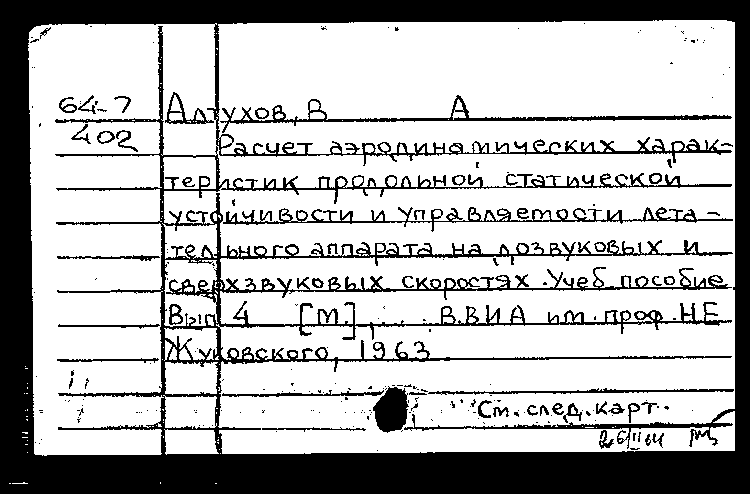 64-7 Алтухов, В А
402 Расчет аэродинамических харак-
теристик продольной статической
устойчивости и управляемости лета-
тельного аппарата на дозвуковых и
сверхзвуковых скоростях. Учеб пособие
Вып 4 [М.], ВВИА им. проф. НЕ
Жуковского, 1963.
См. след. карт.